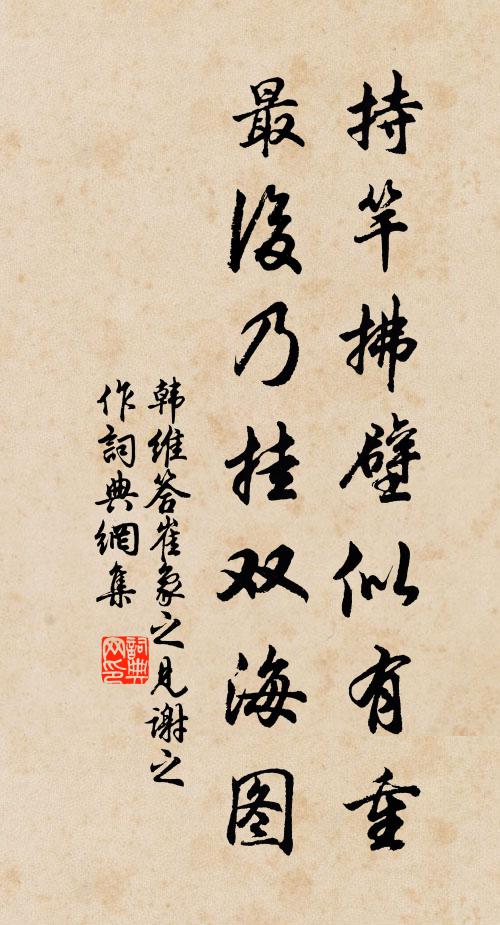 持竿拂壁似有重
最後乃挂双海图
韩维答崔象之见谢之
作詞典網集
詞典网印